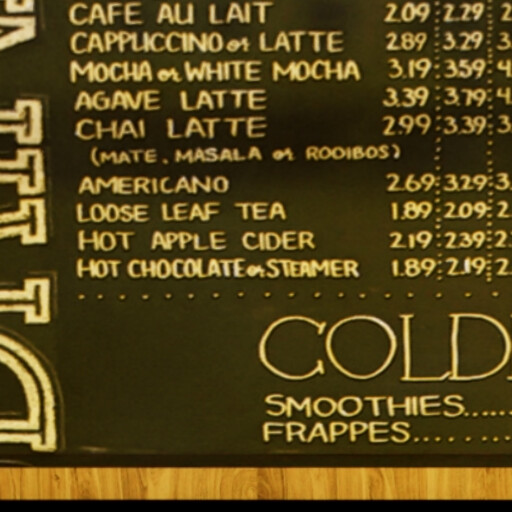 CAFE AU LAIT 2.09 2.29 2
CAPPUCCINO or LATTE 2.89 3.29 3.
MOCHA or WHITE MOCHA 3.19 3.59 4
AGAVE LATTE 3.39 3.79 4.
CHAI LATTE 2.99 3.39 3
(MATE, MASALA or ROOIBOS)
AMERICANO 2.69 3.29 3.
LOOSE LEAF TEA 1.89 2.09 2
HOT APPLE CIDER 2.19 2.39 2
HOT CHOCOLATE or STEAMER 1.89 2.19 2
COLD
SMOOTHIES......
FRAPPES........